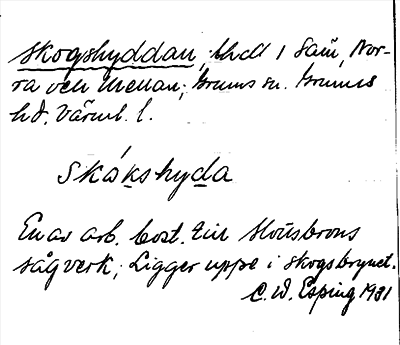 Skogshyddan, bhdl i Sañ, Nor-
ra och Mellan; Grums sn. Grums
hd. Värml. l.
Skåkshyda
En av arb. bost. till Slottsbrons
sågverk; Ligger uppe i skogsbrynet.
C. W. Esping 1931